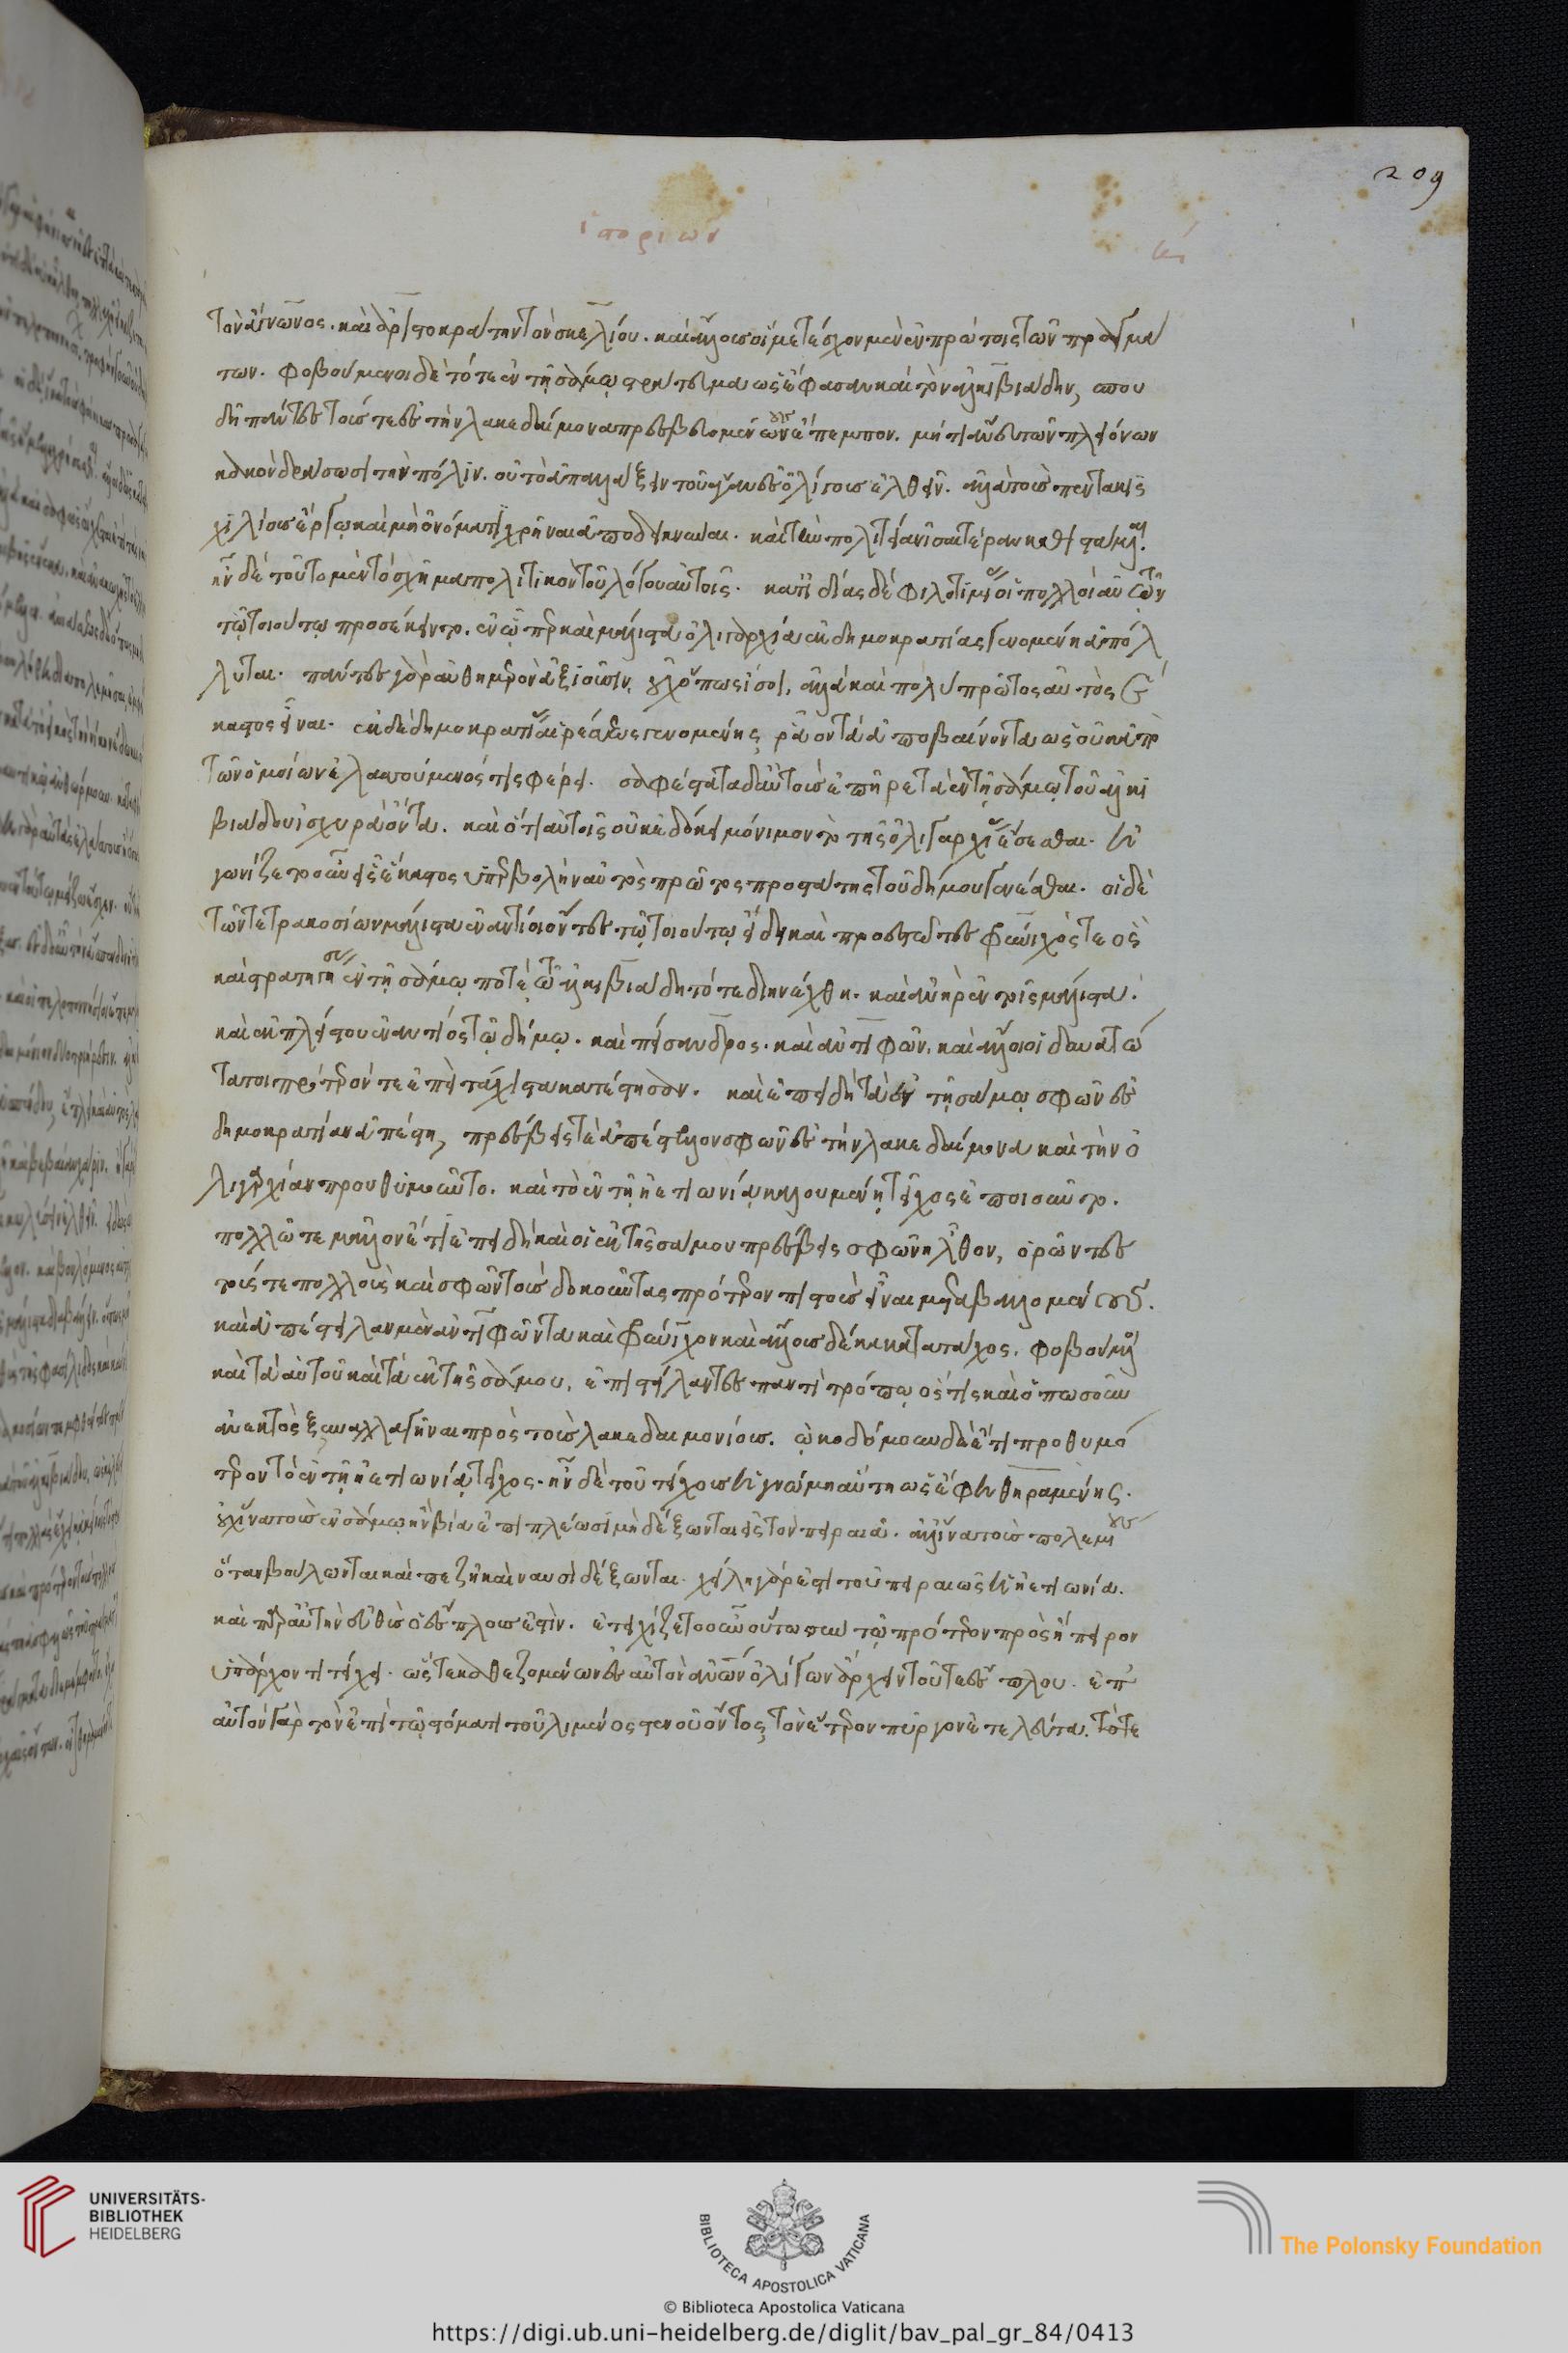 209
ἱστοριῶν
τὸν ἅγνωνος. καὶ ἀριστοκράτην τὸν σκελίου. καὶ ἄλλους οἳ μετέσχον μὲν ἐν πρώτοις τῶν πραγμά
των. φοβούμενοι δὲ τό τε ἐν τῇ σάμῳ στράτευμα ὡς ἔφασαν καὶ τὸν ἀλκιβιάδην, σπου
δῇ πάνυ τούς τε ἐς τὴν λακεδαίμονα πρεσβευομένους ἔπεμπον. μή τι ἄνευ τῶν πλειόνων
κακὸν δράσωσι τὴν πόλιν. οὐ τὸ ἀπαλλάξειν τοῦ ἄγαν ἐς ὀλίγους ἐλθεῖν. ἀλλὰ τοὺς πεντακις
χιλίους ἔργῳ καὶ μὴ ὀνόματι χρῆναι ἀποδεικνύναι. καὶ τὴν πολιτείαν ἰσαιτέραν καθιστάναι.
ἦν δὲ τοῦτο μὲν τὸ σχῆμα πολιτικὸν τοῦ λόγου αὐτοῖς. κατ' ἰδίας δὲ φιλοτιμίας οἱ πολλοὶ αὐτῶν
τῷ τοιούτῳ προσέκειντο. ἐν ᾧπερ καὶ μάλιστα ὀλιγαρχία ἐκ δημοκρατίας γενομένη ἀπόλ
λυται. πάντες γὰρ αὐθημερὸν ἀξιοῦσιν, οὐχ ὅπως ἴσοι, ἀλλὰ καὶ πολὺ πρῶτος αὐτὸς ἕ
καστος εἶναι. ἐκ δὲ δημοκρατίας αἱρέσεως γενομένης ῥᾷον τὰ ἀποβαίνοντα ὡς οὐκ ἀπὸ
τῶν ὁμοίων ἐλασσούμενός τις φέρει. σαφέστατα δ' αὐτοὺς ἐπῆρε τὰ ἐν τῇ σάμῳ τοῦ ἀλκι
βιάδου ἰσχυρὰ ὄντα. καὶ ὅτι αὐτοῖς οὐκ ἐδόκει μόνιμον τὸ τῆς ὀλιγαρχίας ἔσεσθαι. ἠ
γωνίζετο οὖν εἷς ἕκαστος ὑπερβολὴν αὐτὸς πρῶτος προστάτης τοῦ δήμου γενέσθαι. οἱ δὲ
τῶν τετρακοσίων μάλιστα ἐναντίοι ὄντες τῷ τοιούτῳ εἴδει καὶ προεστῶτες φρύνιχός τε ὃς
καὶ στρατηγήσας ἐν τῇ σάμῳ ποτὲ τῷ ἀλκιβιάδῃ τότε διηνέχθη. καὶ ἀνὴρ ἐν τοῖς μάλιστα.
καὶ ἐκ πλείστου ἐναντίος τῷ δήμῳ. καὶ πείσανδρος. καὶ ἀντιφῶν. καὶ ἄλλοι οἱ δυνατώ
τατοι πρότερόν τε ἐπεὶ τάχιστα κατέστησαν. καὶ ἐπειδὴ τὰ ἐν τῇ σάμῳ σφῶν ἐς
δημοκρατίαν ἀπέστη, πρέσβεις τε ἀπέστελλον σφῶν ἐς τὴν λακεδαίμονα καὶ τὴν ὀ
λιγαρχίαν προυθυμοῦντο. καὶ τὸ ἐν τῇ ἠετιωνίᾳ καλουμένῃ τεῖχος ἐποιοῦντο.
πολλῷ τε μᾶλλον ἔτι ἐπειδὴ καὶ οἱ ἐκ τῆς σάμου πρέσβεις σφῶν ἦλθον, ὁρῶντες
τούς τε πολλοὺς καὶ σφῶν τοὺς δοκοῦντας πρότερον πιστοὺς εἶναι μεταβαλλομένους.
καὶ ἀπέστειλαν μὲν ἀντιφῶντα καὶ φρύνιχον καὶ ἄλλους δέκα κατὰ τάχος. φοβούμενοι
καὶ τὰ αὐτοῦ καὶ τὰ ἐκ τῆς σάμου. ἐπιστείλαντες παντὶ τρόπῳ ὅς τις καὶ ὁπωσοῦν
ἀνεκτὸς ξυναλλαγῆναι πρὸς τοὺς λακεδαιμονίους. ᾠκοδόμουν δὲ ἔτι προθυμό
τερον τὸ ἐν τῇ ἠετιωνίᾳ τεῖχος. ἦν δὲ τοῦ τείχους ἡ γνώμη αὕτη ὡς ἔφη θηραμένης.
οὐχ ἵνα τοὺς ἐν σάμῳ ἢν βίᾳ ἐπιπλέωσι μὴ δέξωνται ἐς τὸν πειραιᾶ. ἀλλ' ἵνα τοὺς πολεμίους
ὅταν βούλωνται καὶ πεζῇ καὶ ναυσὶ δέξωνται. χηλὴ γάρ ἐστι τοῦ πειραιῶς ἡ ἠετιωνία.
καὶ παρ' αὐτὴν εὐθὺς ὁ ἔσπλους ἐστίν. ἐτειχίζετο οὖν οὕτω ξὺν τῷ πρότερον πρὸς ἤπειρον
ὑπάρχοντι τείχει. ὥστε καθεζομένων ἐς αὐτὸν ἀνθρώπων ὀλίγων ἄρχειν τοῦ τε ἔσπλου. ἐπ'
αὐτὸν γὰρ τὸν ἐπὶ τῷ στόματι τοῦ λιμένος στενοῦ ὄντος τὸν ἕτερον πύργον ἐτελεύτα. τό τε
UNIVERSITÄTS-
BIBLIOTHEK
HEIDELBERG
BIBLIOTECA APOSTOLICA VATICANA
The Polonsky Foundation
© Biblioteca Apostolica Vaticana
https://digi.ub.uni-heidelberg.de/diglit/bav_pal_gr_84/0413